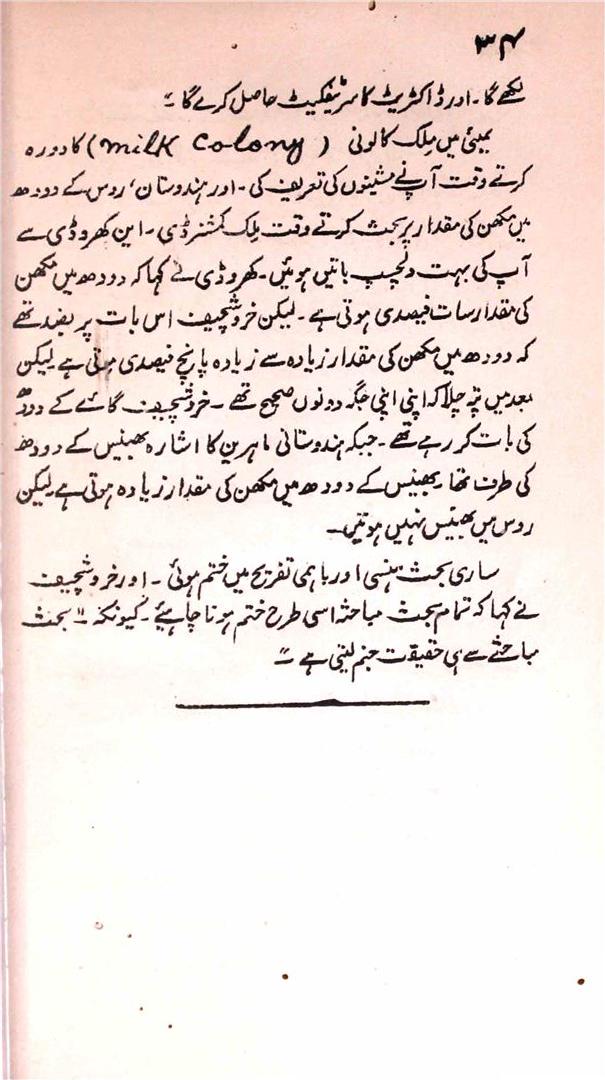 ۳۴
لکھے گا۔ اور ڈاکٹریٹ کا سرٹیفکیٹ حاصل کرے گا ۔"
بمبئی میں مِلک کالونی ( Milk Colony) کا دورہ
کرتے وقت آپ نے مشینوں کی تعریف کی۔ اور ہندوستان، روس کے دودھ
میں مکھن کی مقدار پر بحث کرتے وقت مِلک کمشنر ڈی۔ این کھروڈی سے
آپ کی بہت دلچسپ باتیں ہوئیں۔ کھروڈی نے کہا کہ دودھ میں مکھن
کی مقدار سات فیصدی ہوتی ہے۔ لیکن خروشچیف اس بات پر بضد تھے
کہ دودھ میں مکھن کی مقدار زیادہ سے زیادہ پانچ فیصدی ہوتی ہے لیکن
بعد میں پتہ چلا کہ اپنی اپنی جگہ دونوں صحیح تھے ۔ خروشچیف گائے کے دودھ
کی بات کر رہے تھے ۔ جبکہ ہندوستانی ماہرین کا اشارہ بھینس کے دودھ
کی طرف تھا۔ بھینس کے دودھ میں مکھن کی مقدار زیادہ ہوتی ہے لیکن
روس میں بھینس نہیں ہوتیں۔
ساری بحث ہنسی اور باہمی تفریح میں ختم ہوئی ۔ اور خروشچیف
نے کہا کہ تمام بحث مباحثہ اسی طرح ختم ہونا چاہیئے ۔ کیونکہ ۔" بحث
مباحثے سے ہی حقیقت جنم لیتی ہے ۔"